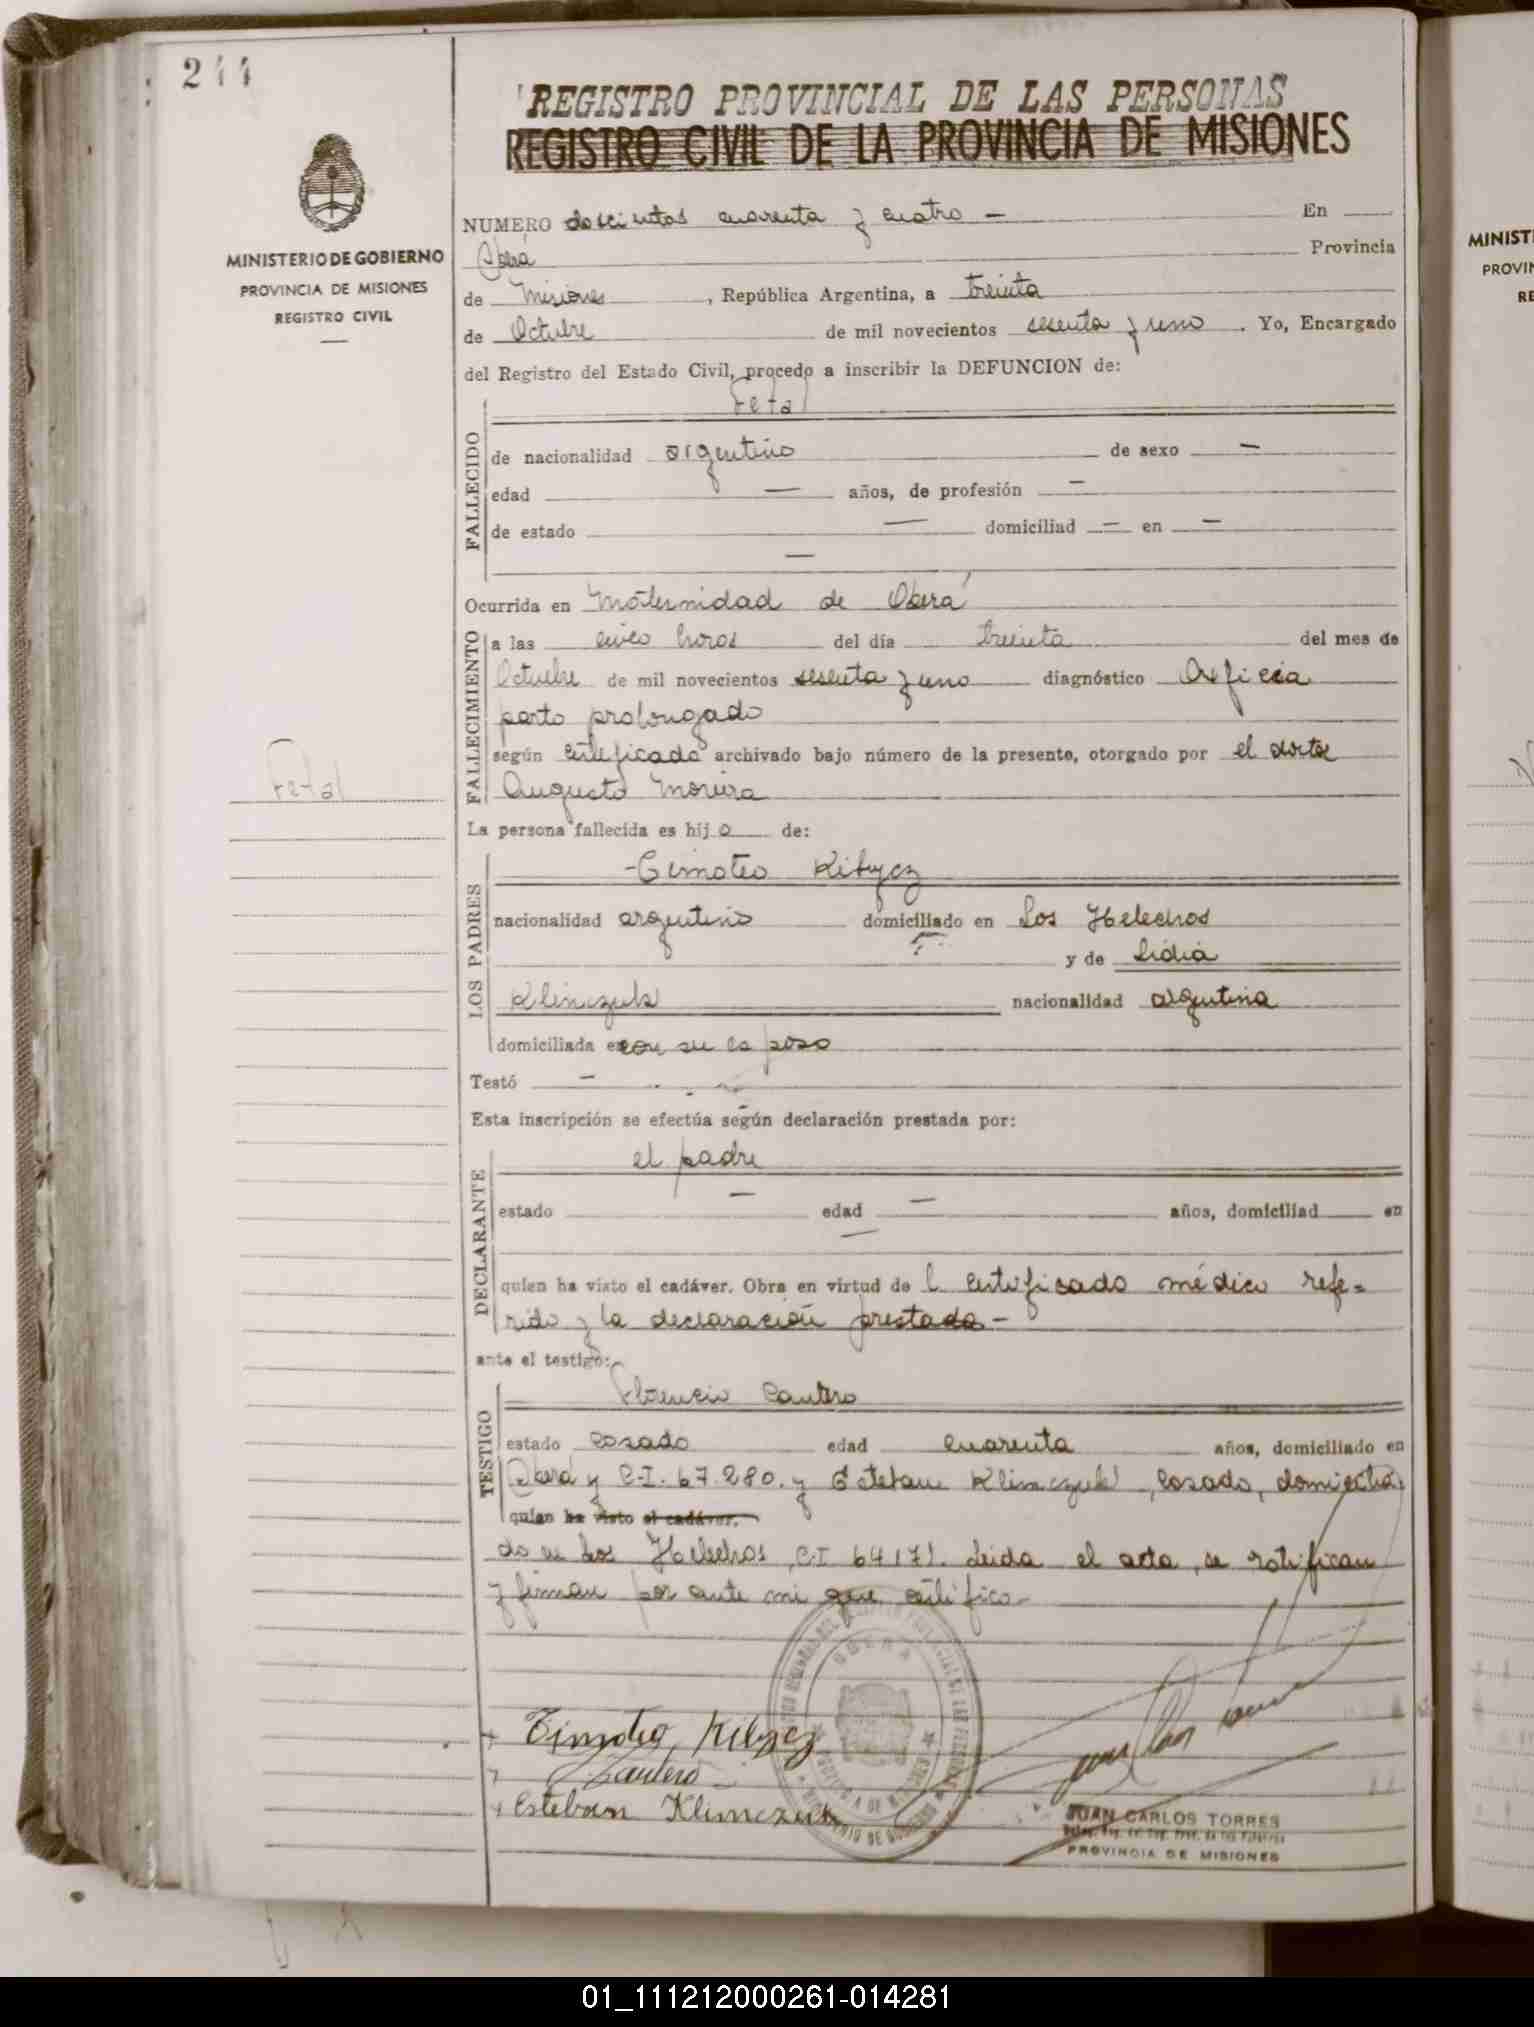 244
REGISTRO PROVINCIAL DE LAS PERSONAS
REGISTRO CIVIL DE LA PROVINCIA DE MISIONES
MINISTERIO DE GOBIERNO
PROVINCIA DE MISIONES
REGISTRO CIVIL
NUMERO doscientos cuarenta y cuatro - En
Oberá Provincia
de Misiones, República Argentina, a treinta
de Octubre de mil novecientos sesenta y uno. Yo, Encargado
del Registro del Estado Civil, procedo a inscribir la DEFUNCION de:
Fetal
FALLECIDO
de nacionalidad argentino de sexo —
edad — años, de profesión —
de estado — domiciliad — en —
—
Ocurrida en Maternidad de Oberá
FALLECIMIENTO
a las cinco horas del día treinta del mes de
Octubre de mil novecientos sesenta y uno diagnóstico Asficcia
parto prolongado
según certificado archivado bajo número de la presente, otorgado por el doctor
Augusto Moreira
Fetal
La persona fallecida es hijo de:
LOS PADRES
-Timoteo Kibycz
nacionalidad argentino domiciliado en Los Helechos
y de Lidia
Klimczuk nacionalidad argentina
domiciliada en con su esposo
Testó —
Esta inscripción se efectúa según declaración prestada por:
el padre
DECLARANTE
estado — edad — años, domiciliad en
—
quien ha visto el cadáver. Obra en virtud de l certificado médico refe=
rido y la declaración prestada -
ante el testigo:
Florencio Cantero
TESTIGO
estado casado edad cuarenta años, domiciliado en
Oberá y C-I. 67.280. y Esteban Klimczuk, casado, domicilia
quien ha visto el cadáver.
do en Los Helechos, C-I 64171. Leida el acta, se ratifican
y firman por ante mi que certifico-
Timoteo Kibycz
Cantero
Esteban Klimczuk
OBERA
JUAN CARLOS TORRES
PROVINCIA DE MISIONES
MINIST
PROVIN
RE
01_111212000261-014281